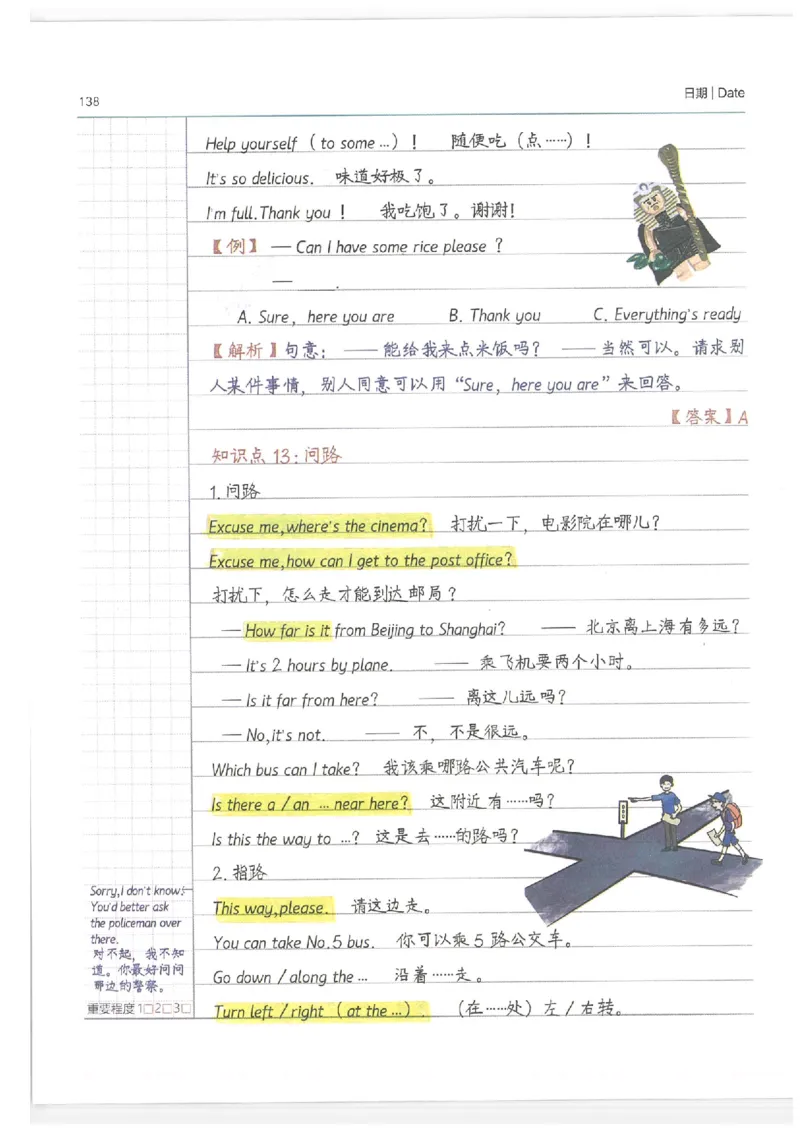 138
日期 | Date
Help yourself （to some …）！ 随便吃（点……）！
It's so delicious. 味道好极了。
I'm full.Thank you！ 我吃饱了。谢谢！
【例】 — Can I have some rice please？
— ______.
A. Sure，here you are B. Thank you C. Everything's ready
【解析】句意：——能给我来点米饭吗？ ——当然可以。请求别
人某件事情，别人同意可以用“Sure，here you are”来回答。
【答案】A
知识点 13：问路
1. 问路
Excuse me,where's the cinema? 打扰一下，电影院在哪儿？
Excuse me,how can I get to the post office?
打扰下，怎么走才能到达邮局？
— How far is it from Beijing to Shanghai? —— 北京离上海有多远？
— It's 2 hours by plane. —— 乘飞机要两个小时。
— Is it far from here? —— 离这儿远吗？
— No,it's not. —— 不，不是很远。
Which bus can I take? 我该乘哪路公共汽车呢？
Is there a / an … near here? 这附近有……吗？
Is this the way to …? 这是去……的路吗？
2. 指路
This way,please. 请这边走。
You can take No.5 bus. 你可以乘5路公交车。
Go down / along the … 沿着……走。
Turn left / right （at the …）. （在……处）左 / 右转。
Sorry,I don't know!
You'd better ask
the policeman over
there.
对不起，我不知
道。你最好问问
那边的警察。
重要程度 1□2□3□